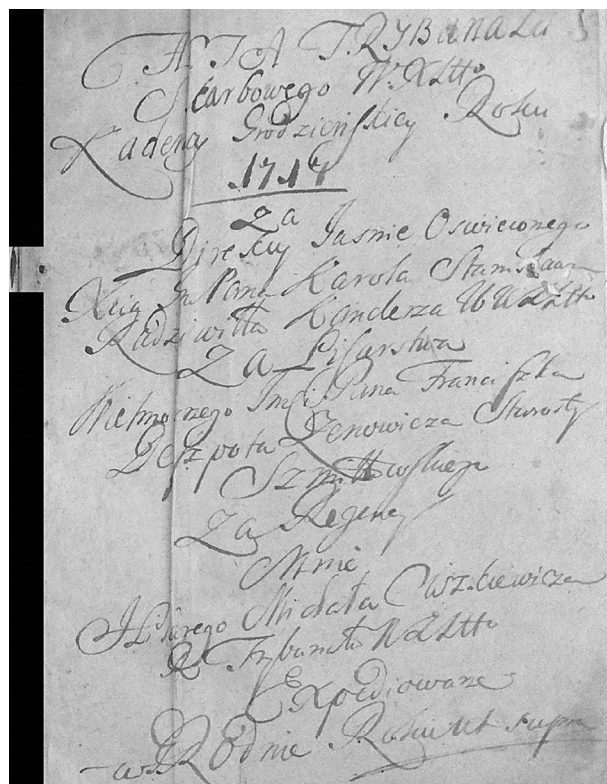 AKTA TRYBUNAŁU
Skarbowego W. X Litto
Kadency Grodzieńskiey Roku
1717
Za
Direkcyi Jasnie Oswieconego
Xcia Jm Pana Karola Stanisława
Radziwiłła Kanclerza WWXLitto
Za Pisarstwa
Wielmoznego Jmci Pana Franciszka
Despota Zenowicza Starosty
Za Regency
Mnie
Michała
R Trybunału WXLitto
Expediowane
w GRodnie Roku ut supra